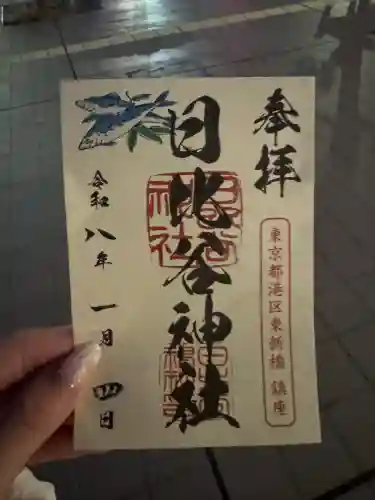 奉拝
東京都港区東新橋 鎮座
日比谷神社
日比谷神社
令和八年 一月 四日